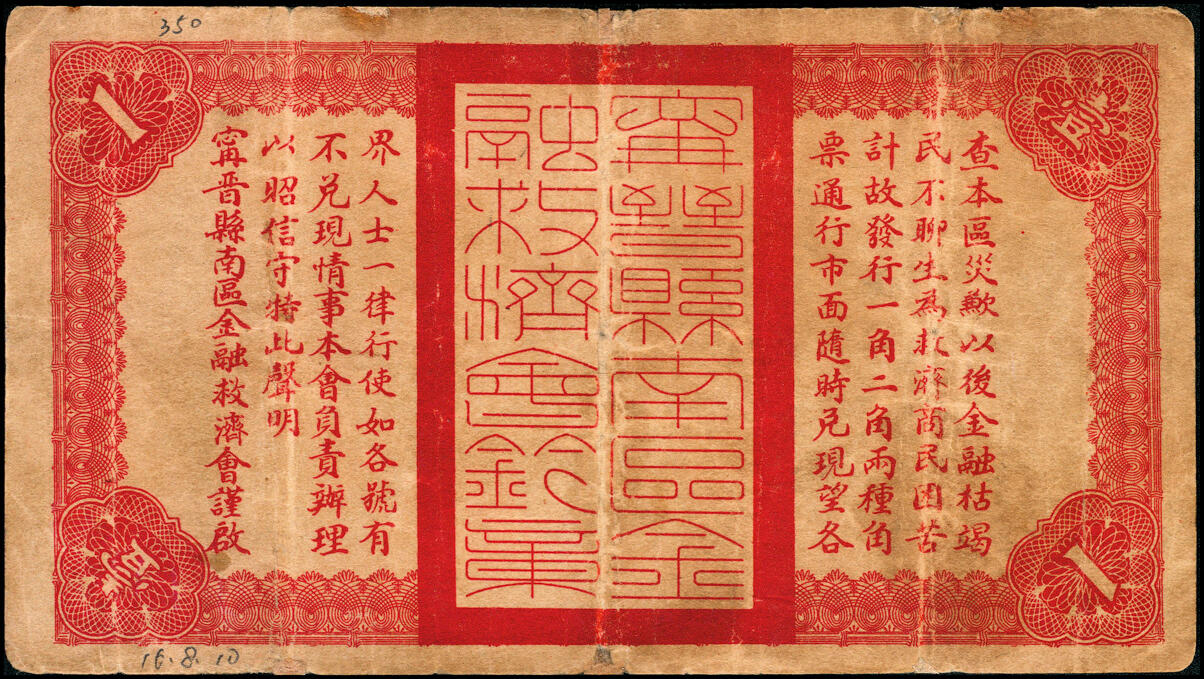 350
1
查本區災歉以後金融枯竭
民不聊生為救濟商民困苦
計故發行一角二角兩種角
票通行市面隨時兌現望各
寗晉縣南區金
融救濟會鈐章
界人士一律行使如各號有
不兌現情事本會負責辦理
以昭信守特此聲明
寗晉縣南區金融救濟會謹啟
1
16.8.10